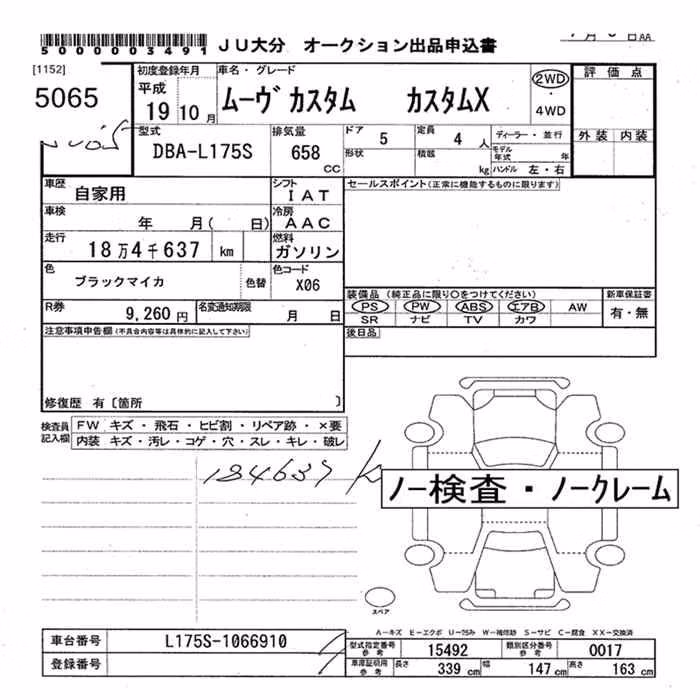 5000003491 JU大分 オークション出品申込書
[1152]
5065
初度登録年月
平成
19 10 月
車名・グレード
ムーヴ カスタム カスタムX
2WD
・
4WD
評価点
外装 内装
型式
DBA-L175S
排気量
658
CC
ドア
5
定員
4 人
ディーラー・並行
形状
積載
kg
モデル年式 年
ハンドル 左・右
車歴
自家用
シフト
IAT
セールスポイント(正常に機能するものに限ります)
車検
年 月( 日)
冷房
AAC
走行
18万4千637 km
燃料
ガソリン
色
ブラックマイカ
色替
色コード
X06
R券
9,260円
名変通知期限
月 日
装備品 (純正品に限り○をつけてください)
PS PW ABS エアB AW
SR ナビ TV カワ
新車保証書
有・無
後日品
注意事項申告欄(不具合内容等は具体的に記入して下さい)
修復歴 有〔箇所 〕
検査員記入欄
FW キズ・飛石・ヒビ割・リペア跡・×要
内装 キズ・汚レ・コゲ・穴・スレ・キレ・破レ
184637 k
ノー検査・ノークレーム
スペア
A-キズ E-エクボ U-凹み W-補修跡 S-サビ C-腐食 XX-交換済
車台番号
L175S-1066910
登録番号
型式指定番号参考
15492
類別区分番号参考
0017
車庫証明用参考
長さ 339 cm 幅 147 cm 高さ 163 cm